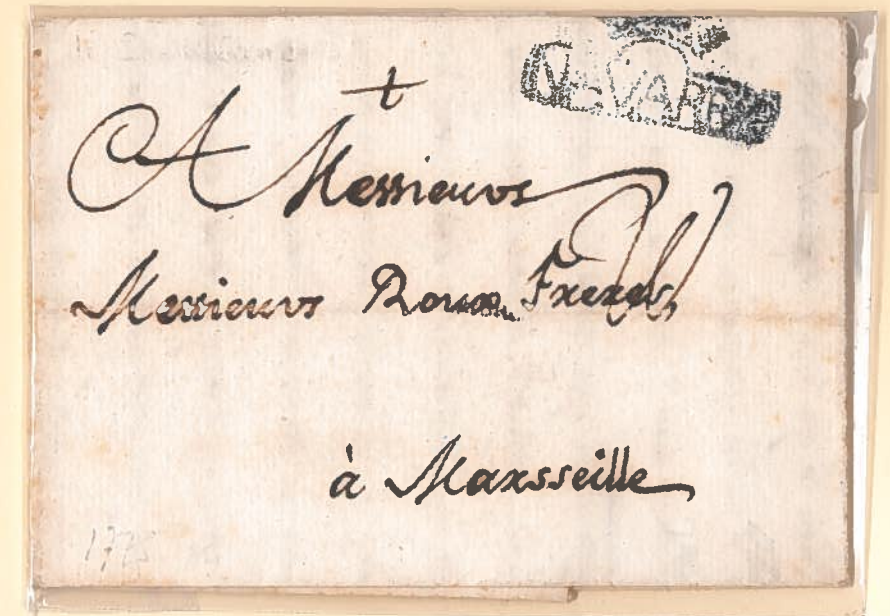 NAVARRA
+
A Messieurs
Messieurs Roux Freres
à Marsseille
1775